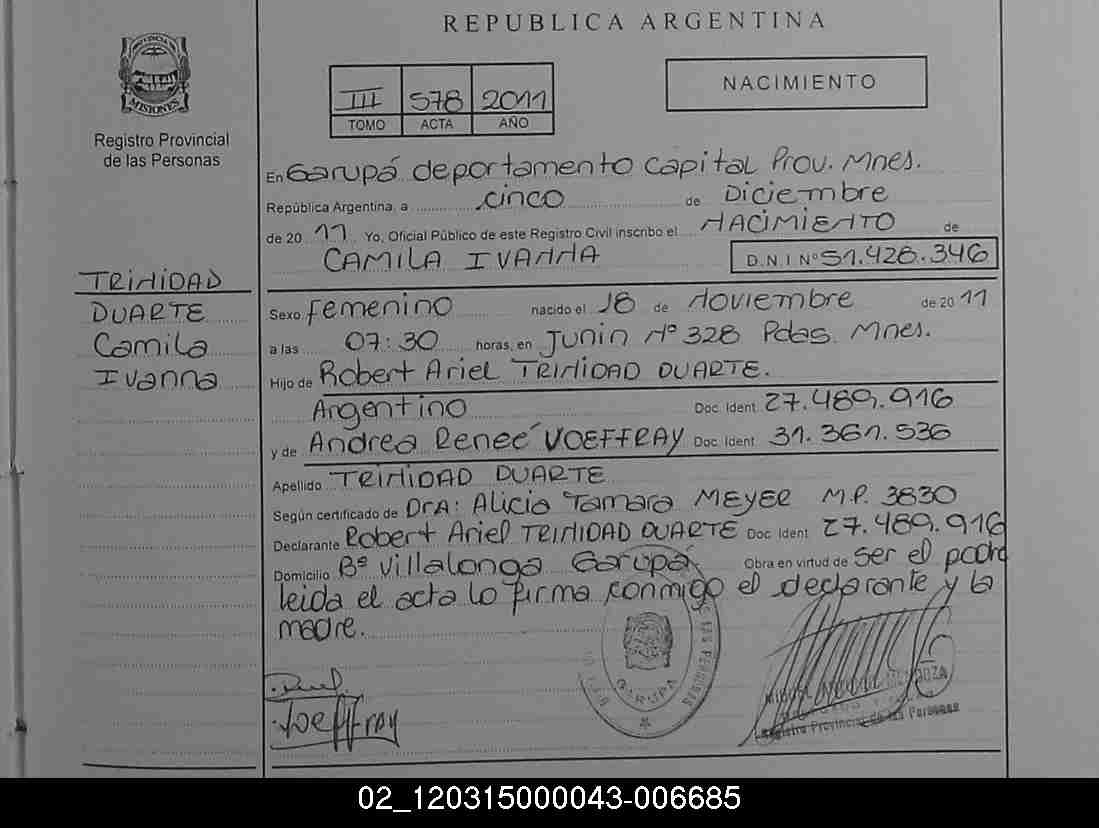 REPUBLICA ARGENTINA
PROVINCIA DE
MISIONES
Registro Provincial
de las Personas
III 578 2011
TOMO ACTA AÑO
NACIMIENTO
En Garupá departamento Capital Prov. Mnes.
República Argentina, a cinco de Diciembre
de 20 11 Yo, Oficial Público de este Registro Civil inscribo el NACIMIENTO de
CAMILA IVANNA D.N.I Nº 51.428.346
TRINIDAD
DUARTE
Camila
Ivanna
Sexo Femenino nacido el 18 de Noviembre de 20 11
a las 07:30 horas, en Junin Nº 328 Pdas. Mnes.
Hijo de Robert Ariel TRINIDAD DUARTE.
Argentino Doc. Ident 27.489.916
y de Andrea Reneé VOEFFRAY Doc. Ident 31.361.536
Apellido TRINIDAD DUARTE
Según certificado de DrA: Alicia Tamara MEYER M.P. 3830
Declarante Robert Ariel TRINIDAD DUARTE Doc Ident 27.489.916
Domicilio Bº Villalonga Garupá Obra en virtud de ser el padre
leida el acta lo firma conmigo el declarante y la
madre.
Voeffray
GARUPA
LAS PERSONAS
MENDOZA
Registro Provincial de las Personas
02_120315000043-006685